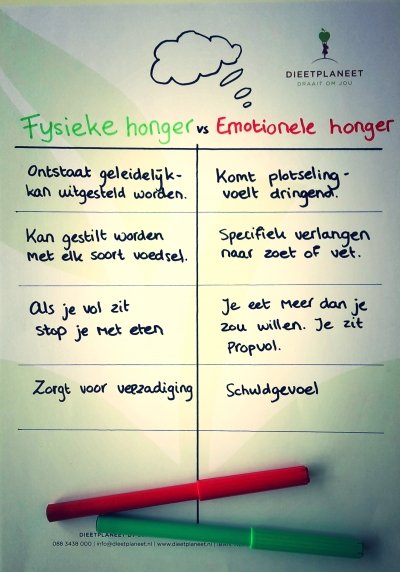 DIEETPLANEET
DRAAIT OM JOU
Fysieke honger vs Emotionele honger
Ontstaat geleidelijk-
kan uitgesteld worden.
Komt plotseling-
voelt dringend.
Kan gestilt worden
met elk soort voedsel.
Specifiek verlangen
naar zoet of vet.
Als je vol zit
stop je met eten
Je eet meer dan je
zou willen. Je zit
propvol.
Zorgt voor verzadiging
Schuldgevoel
DIEETPLANEET
088 3438 000 | info@dieetplaneet.nl | www.dieetplaneet.nl